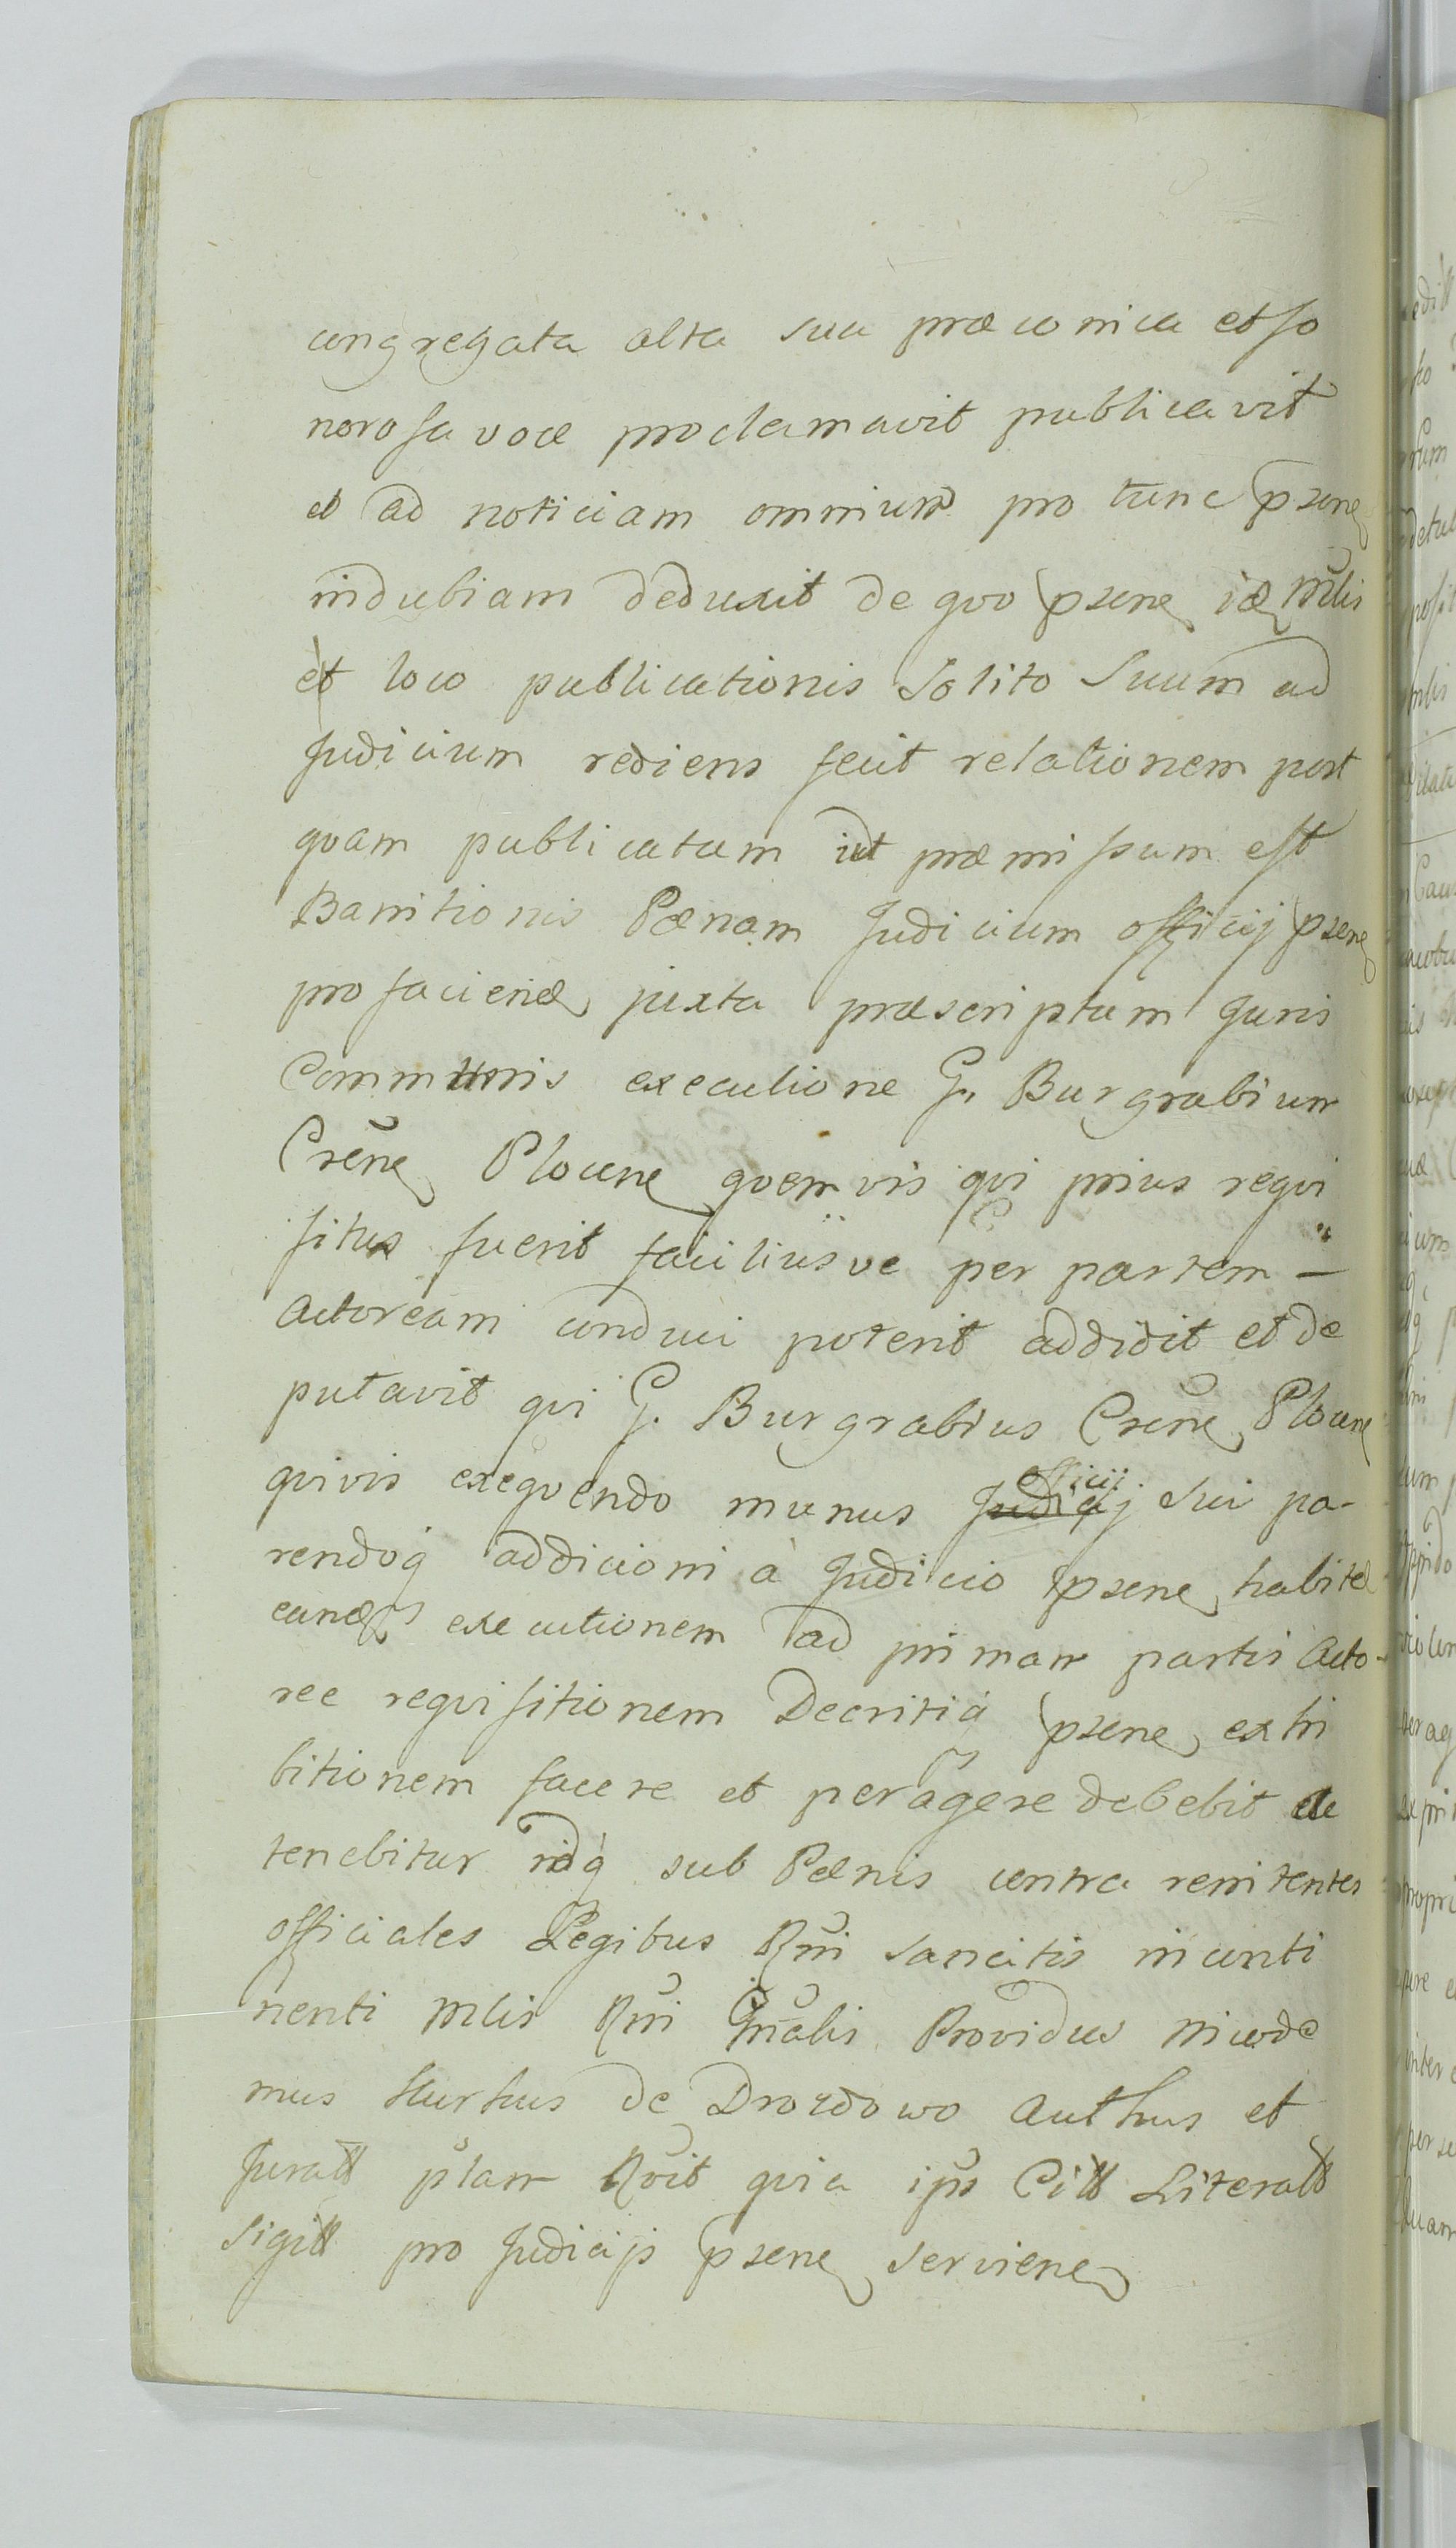 congregata alta sua præconica et so
norosa voce proclamavit publicavit
et ad noticiam omnium pro tunc psene
indubiam deduxit de qvo psene idē Mnlis
et loco publicationis Solito Suum ad
Judicium rediens fecit relationem post
qvam publicatam ut præmissum est
Banitionis Pænam Judicium officij psene
pro faciend juxta præscriptum Juris
Communis executione G. Burgrabium
Crēne Plocene qvemvis qvi prius reqvi
situs fuerit faciliusve per partem –
Actoream conduci poterit addidit et de
putavit qvi G. Burgrabius Crēne Plocene
qvivis exeqvendo munus officij Sui pa-
rendoq addicioni à Judicio psene habitæ
eand executionem ad primam partis Acto-
ree reqvisitionem Decretiq psene exhi
bitionem facere et peragere debebit ac
tenebitur idq sub Pænis contra renitentes
officiales Legibus Rñi sancitis in conti
nenti Mlis Rñi Gñalis Providus Nicode
mus Kurkus de Drozdowo Authus et
Juratt plam Rvit qvia ips Citt Literatt
Sigitt pro Judicijs psene serviene